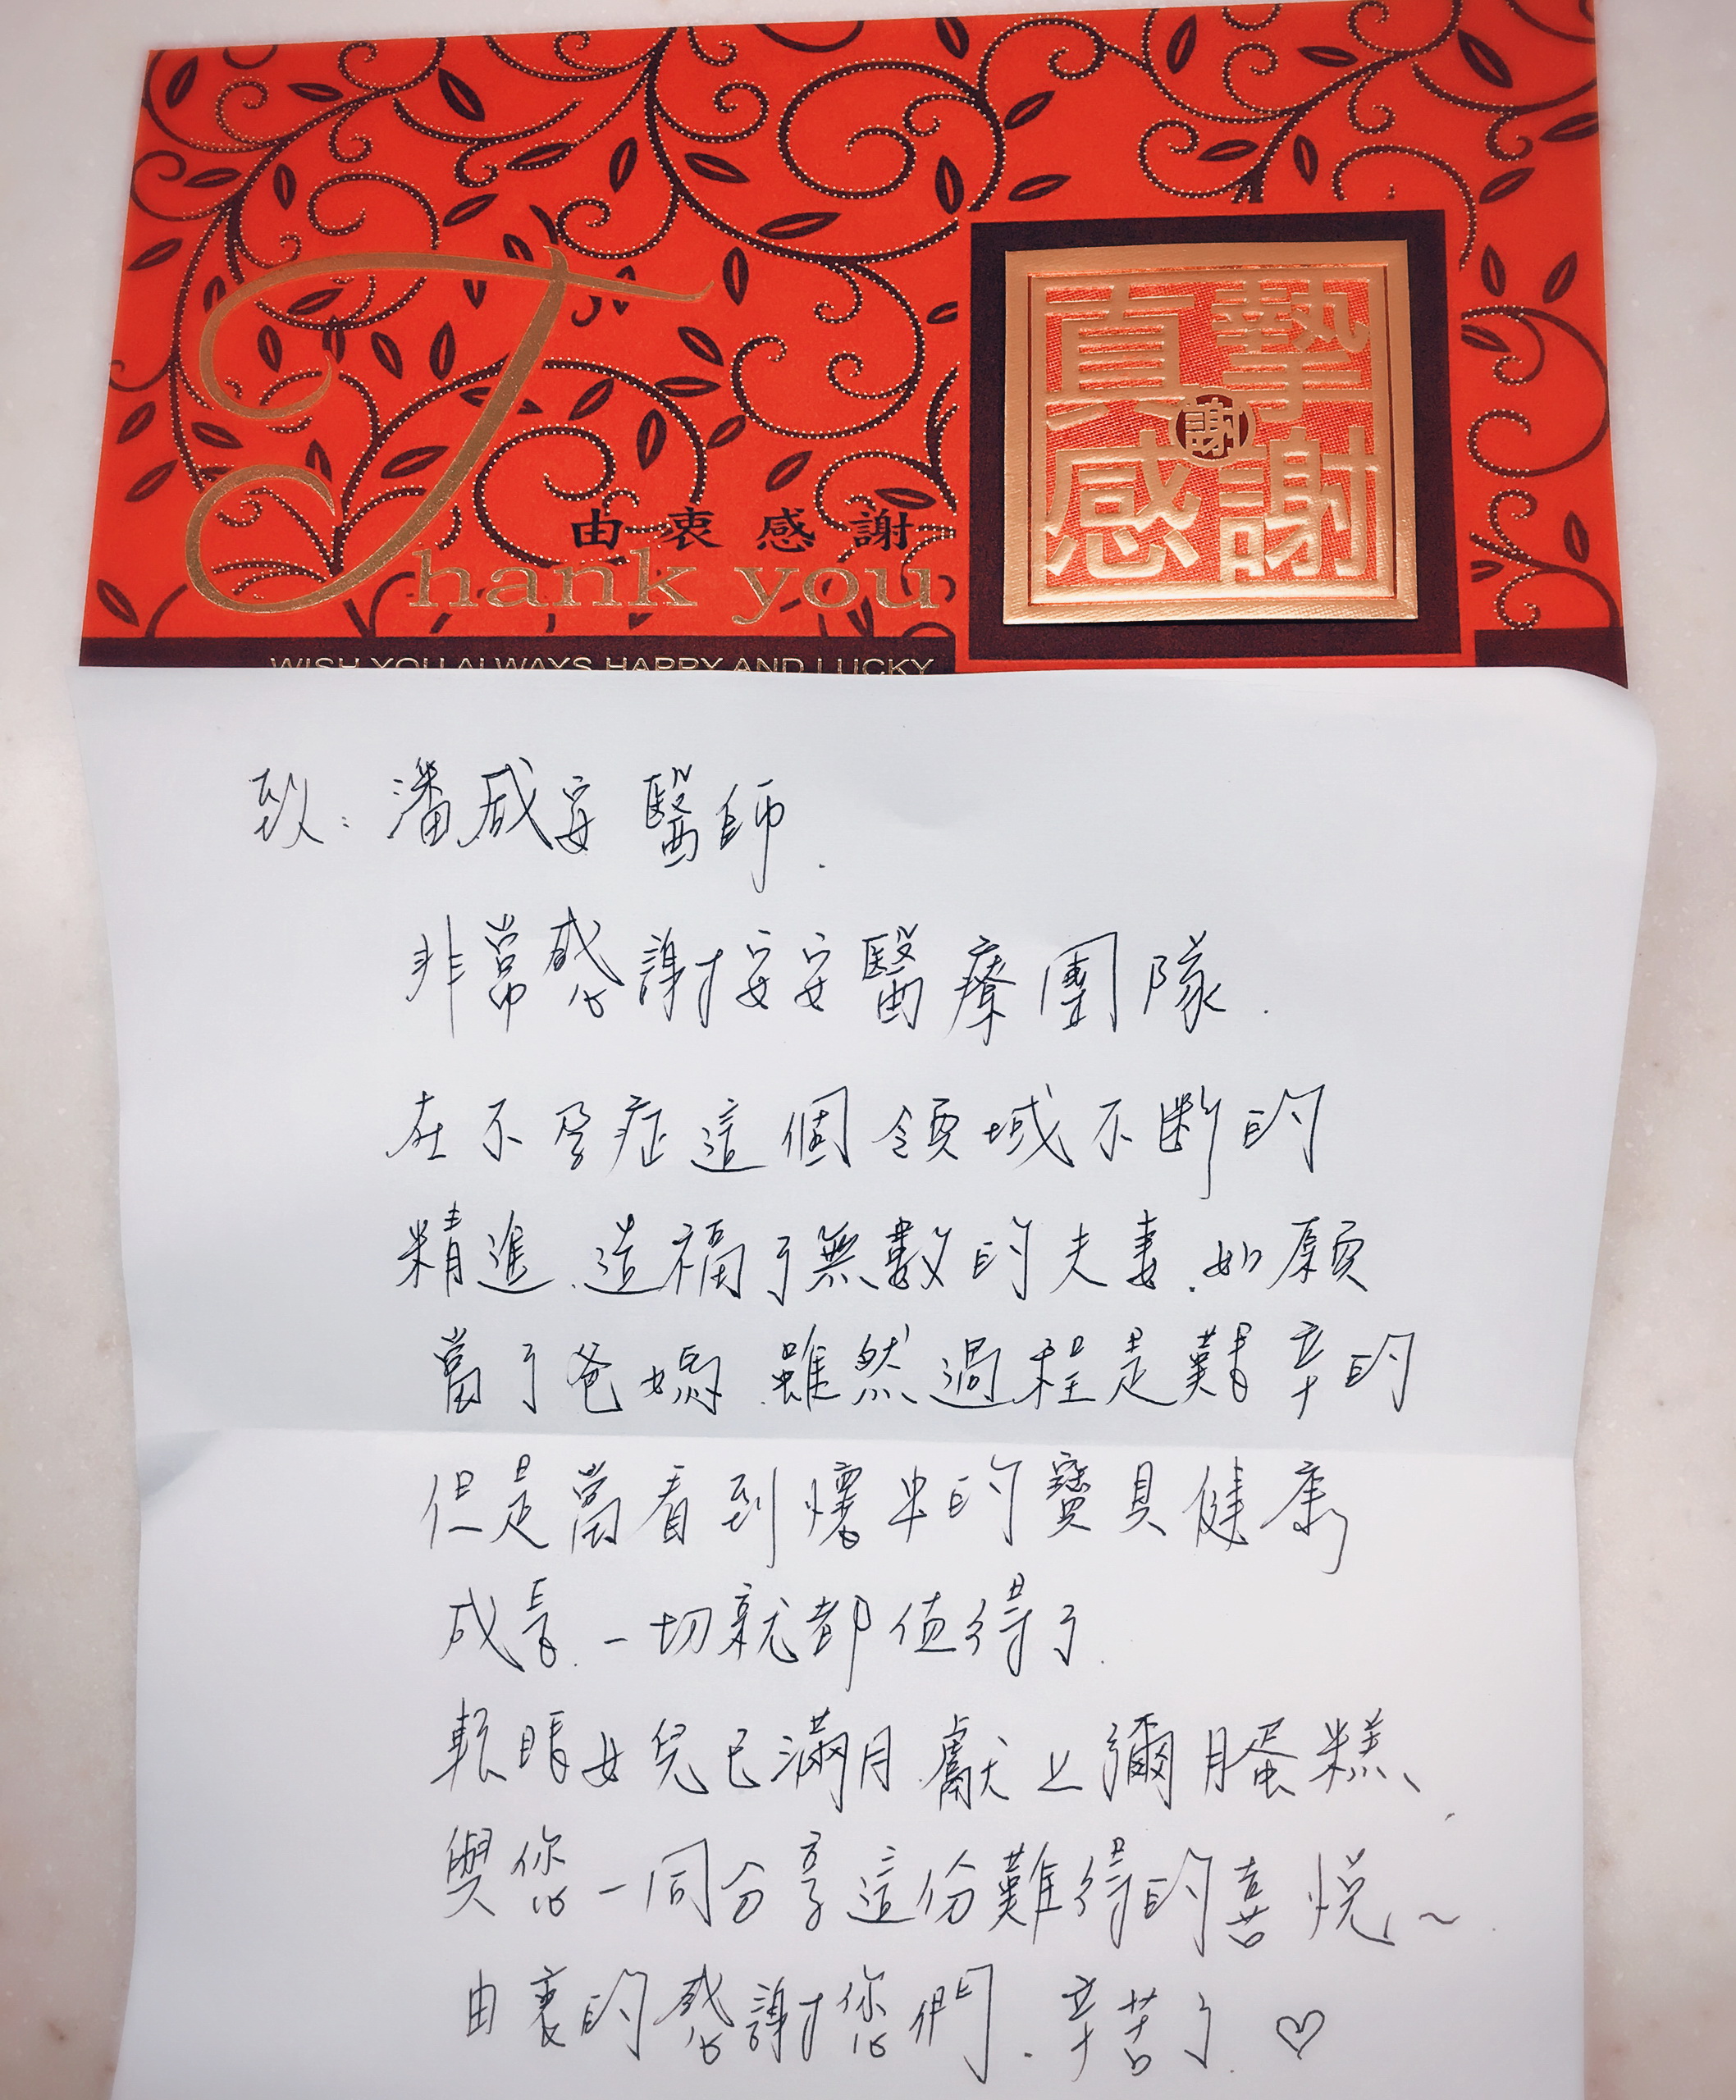 真摯
感謝
謝
由衷感謝
Thank you
WISH YOU ALWAYS HAPPY AND LUCKY
致:潘咸安醫師.
非常感謝安安醫療團隊.
在不孕症這個領域不斷的
精進.造福了無數的夫妻.如願
當了爸媽.雖然過程是艱辛的
但是當看到懷中的寶貝健康
成長.一切就都值得了.
転眼女兒已滿月.獻上彌月蛋糕、
與您一同分享這份難得的喜悅~.
由衷的感謝您們.辛苦了.♡